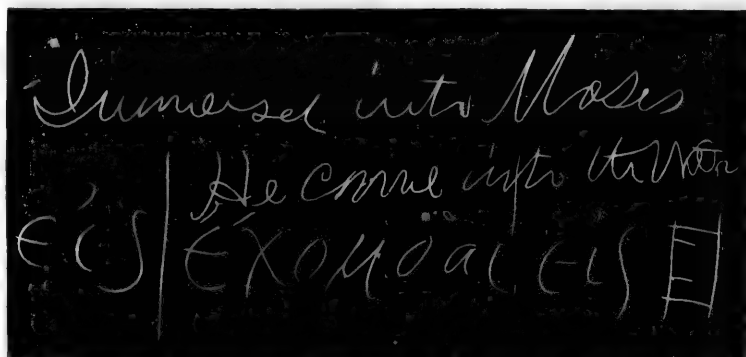 Immersed into Moses
He come into the Water
εἰς ἔχομαι εις